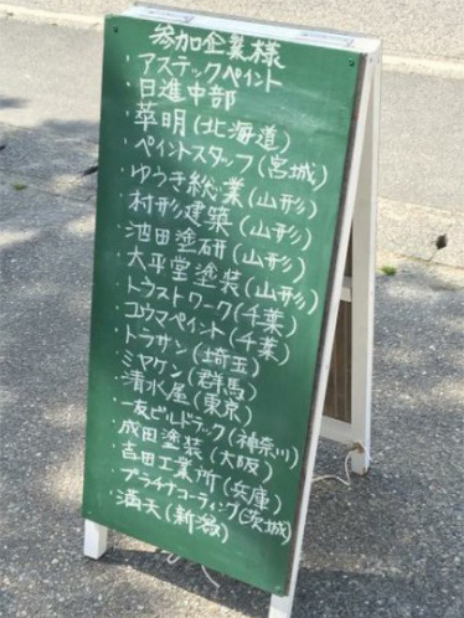 参加企業様
・アステックペイント
・日進中部
・萃明(北海道)
・ペイントスタッフ(宮城)
・ゆうき総業(山形)
・村形建築(山形)
・池田塗研(山形)
・大平堂塗装(山形)
・トラストワーク(千葉)
・ユウマペイント(千葉)
・トラサン(埼玉)
・ミヤケン(群馬)
・清水屋(東京)
・一友ビルドテック(神奈川)
・成田塗装(大阪)
・吉田工業所(兵庫)
・プライナコーティング(茨城)
・満天(新潟)